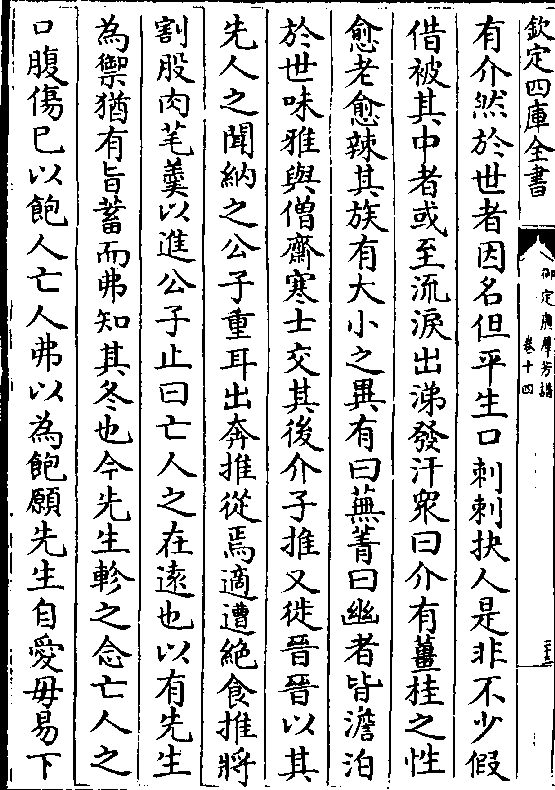 欽定四庫全書
御定廣羣芳譜
卷十四
有介然於世者因名但平生口刺刺抉人是非不少假
借被其中者或至流淚出涕發汗衆曰介有薑桂之性
愈老愈辣其族有大小之異有曰蕪菁曰幽者皆澹泊
於世味雅與僧齋寒士交其後介子推又徙晉晉以其
先人之聞納之公子重耳出奔推從焉適遭絶食推將
割股肉芼羹以進公子止曰亡人之在逺也以有先生
為禦猶有旨蓄而弗知其冬也今先生軫之念亡人之
口腹傷已以飽人亡人弗以為飽願先生自愛毋易下